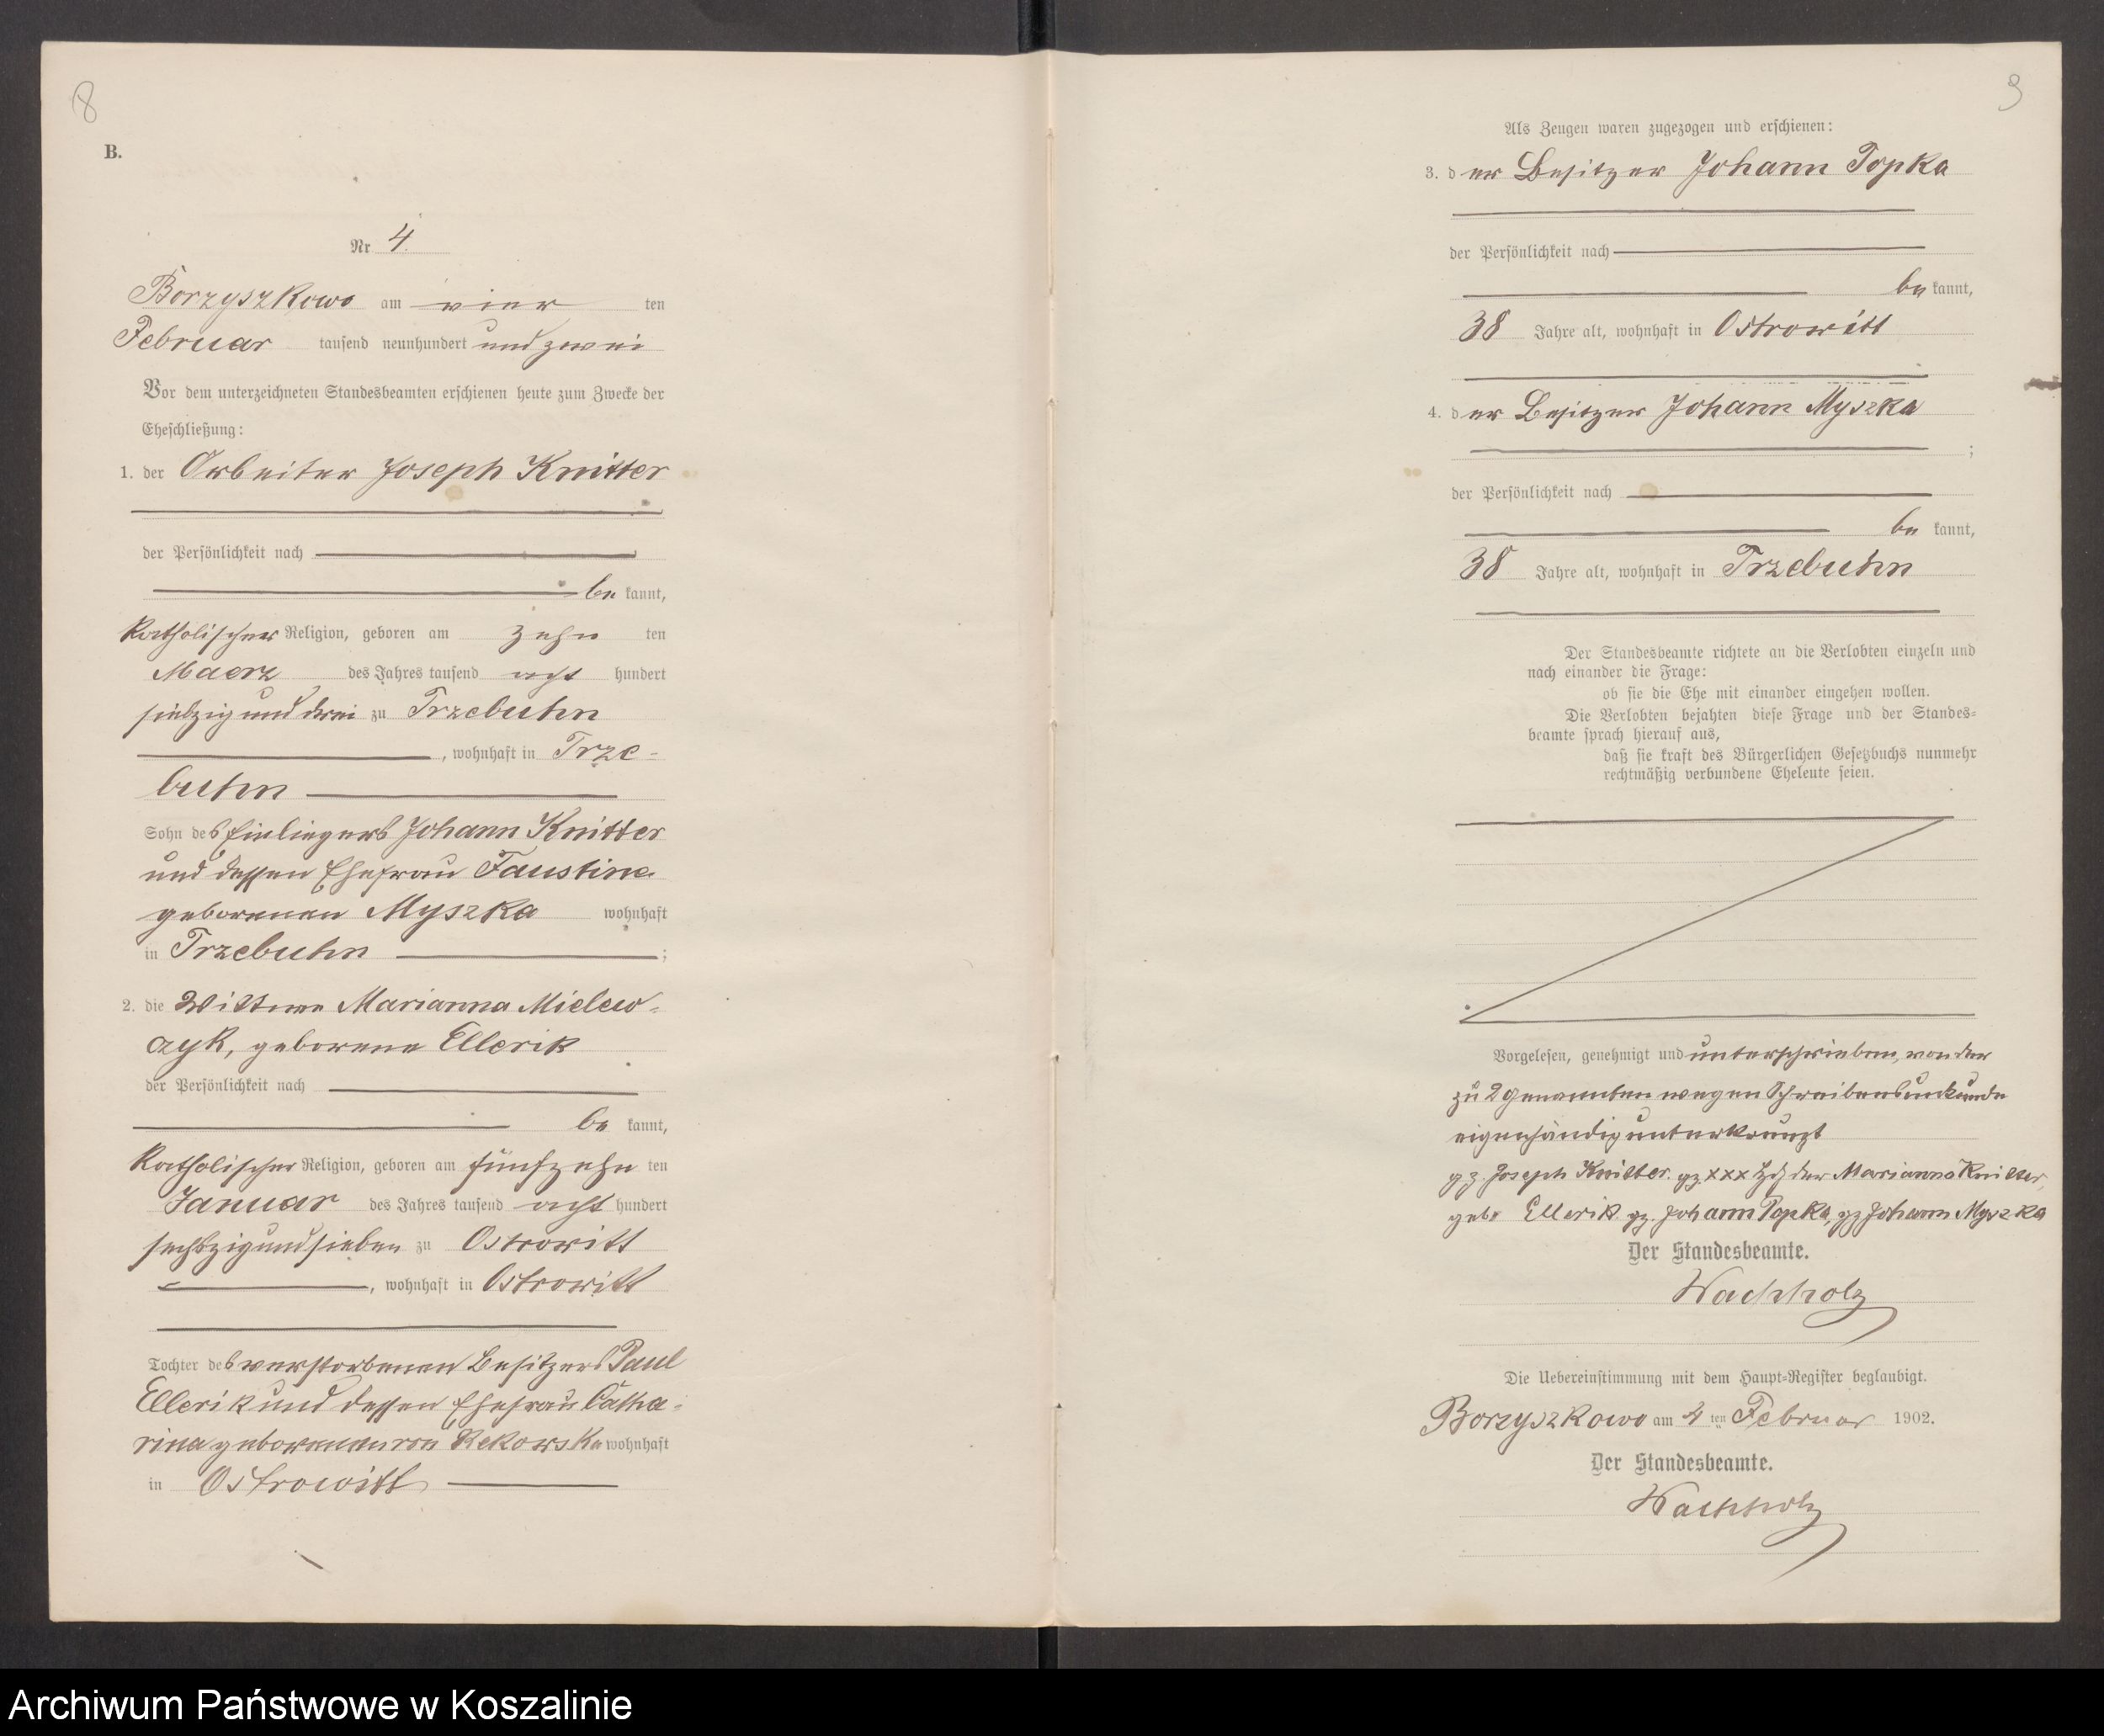 8
B.
Nr 4.
Borzyszkowo am vier ten
Februar tausend neunhundert und zwei
Vor dem unterzeichneten Standesbeamten erschienen heute zum Zwecke der
Eheschließung:
1. der Arbeiter Joseph Knitter
der Persönlichkeit nach
be kannt,
katholischer Religion, geboren am zehn ten
Maerz des Jahres tausend acht hundert
siebzig und drei zu Trzebuhn
, wohnhaft in Trze-
buhn
Sohn des Einliegers Johann Knitter
und dessen Ehefrau Faustine
geborenen Myszka wohnhaft
in Trzebuhn ;
2. die Wittwe Marianna Mielew-
czyk, geborene Ellerik
der Persönlichkeit nach
be kannt,
katholischer Religion, geboren am fünfzehn ten
Januar des Jahres tausend acht hundert
sechszig und sieben zu Ostrowitt
, wohnhaft in Ostrowitt
Tochter des verstorbenen Besitzers Paul
Ellerik und dessen Ehefrau Catha-
rina geborenen von Rekowska wohnhaft
in Ostrowitt
9
Als Zeugen waren zugezogen und erschienen:
3. der Besitzer Johann Topka
der Persönlichkeit nach
be kannt,
38 Jahre alt, wohnhaft in Ostrowitt
4. der Besitzer Johann Myszka
;
der Persönlichkeit nach
be kannt,
38 Jahre alt, wohnhaft in Trzebuhn
Der Standesbeamte richtete an die Verlobten einzeln und
nach einander die Frage:
ob sie die Ehe mit einander eingehen wollen.
Die Verlobten bejahten diese Frage und der Standes-
beamte sprach hierauf aus,
daß sie kraft des Bürgerlichen Gesetzbuchs nunmehr
rechtmäßig verbundene Eheleute seien.
Vorgelesen, genehmigt und unterschrieben, von der
zu 2 Genannten wegen Schreibensunkunde
eigenhändig unterkreuzt
gz. Joseph Knitter. gz. xxx Hdz der Marianna Knitter,
geb. Ellerik. gz. Johann Topka, gz Johann Myszka
Der Standesbeamte.
Wachholz
Die Uebereinstimmung mit dem Haupt-Register beglaubigt.
Borzyszkowo am 4 ten Februar 1902.
Der Standesbeamte.
Wachholz
Archiwum Państwowe w Koszalinie